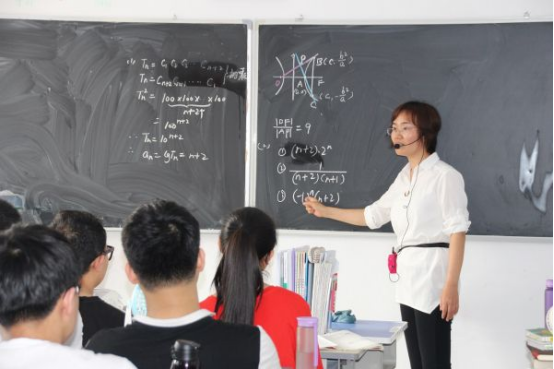 (1) Tn = C1 C2 C3 … Cn+2
Tn = Cn+2 Cn+1 … C1
Tn² = 100×100× … ×100
n+2个
= 100^(n+2)
∴ Tn = 10^(n+2)
an = lgTn = n+2
B(c, b²/a)
A
F
C(c, -b²/a)
|OF|/|AF| = 9
(2)
① (n+2)·2ⁿ
② 1/((n+2)(n+1))
③ (-1)ⁿ(n+2)